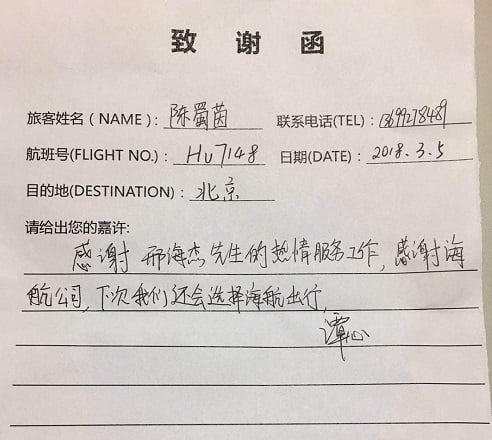 致谢函
旅客姓名(NAME): 陈蜀茵 联系电话(TEL): 13699278489
航班号(FLIGHT NO.): HU7148 日期(DATE): 2018.3.5
目的地(DESTINATION): 北京
请给出您的嘉许:
感谢 邢海杰先生的热情服务工作, 感谢海
航公司, 下次我们还会选择海航出行,
谭心